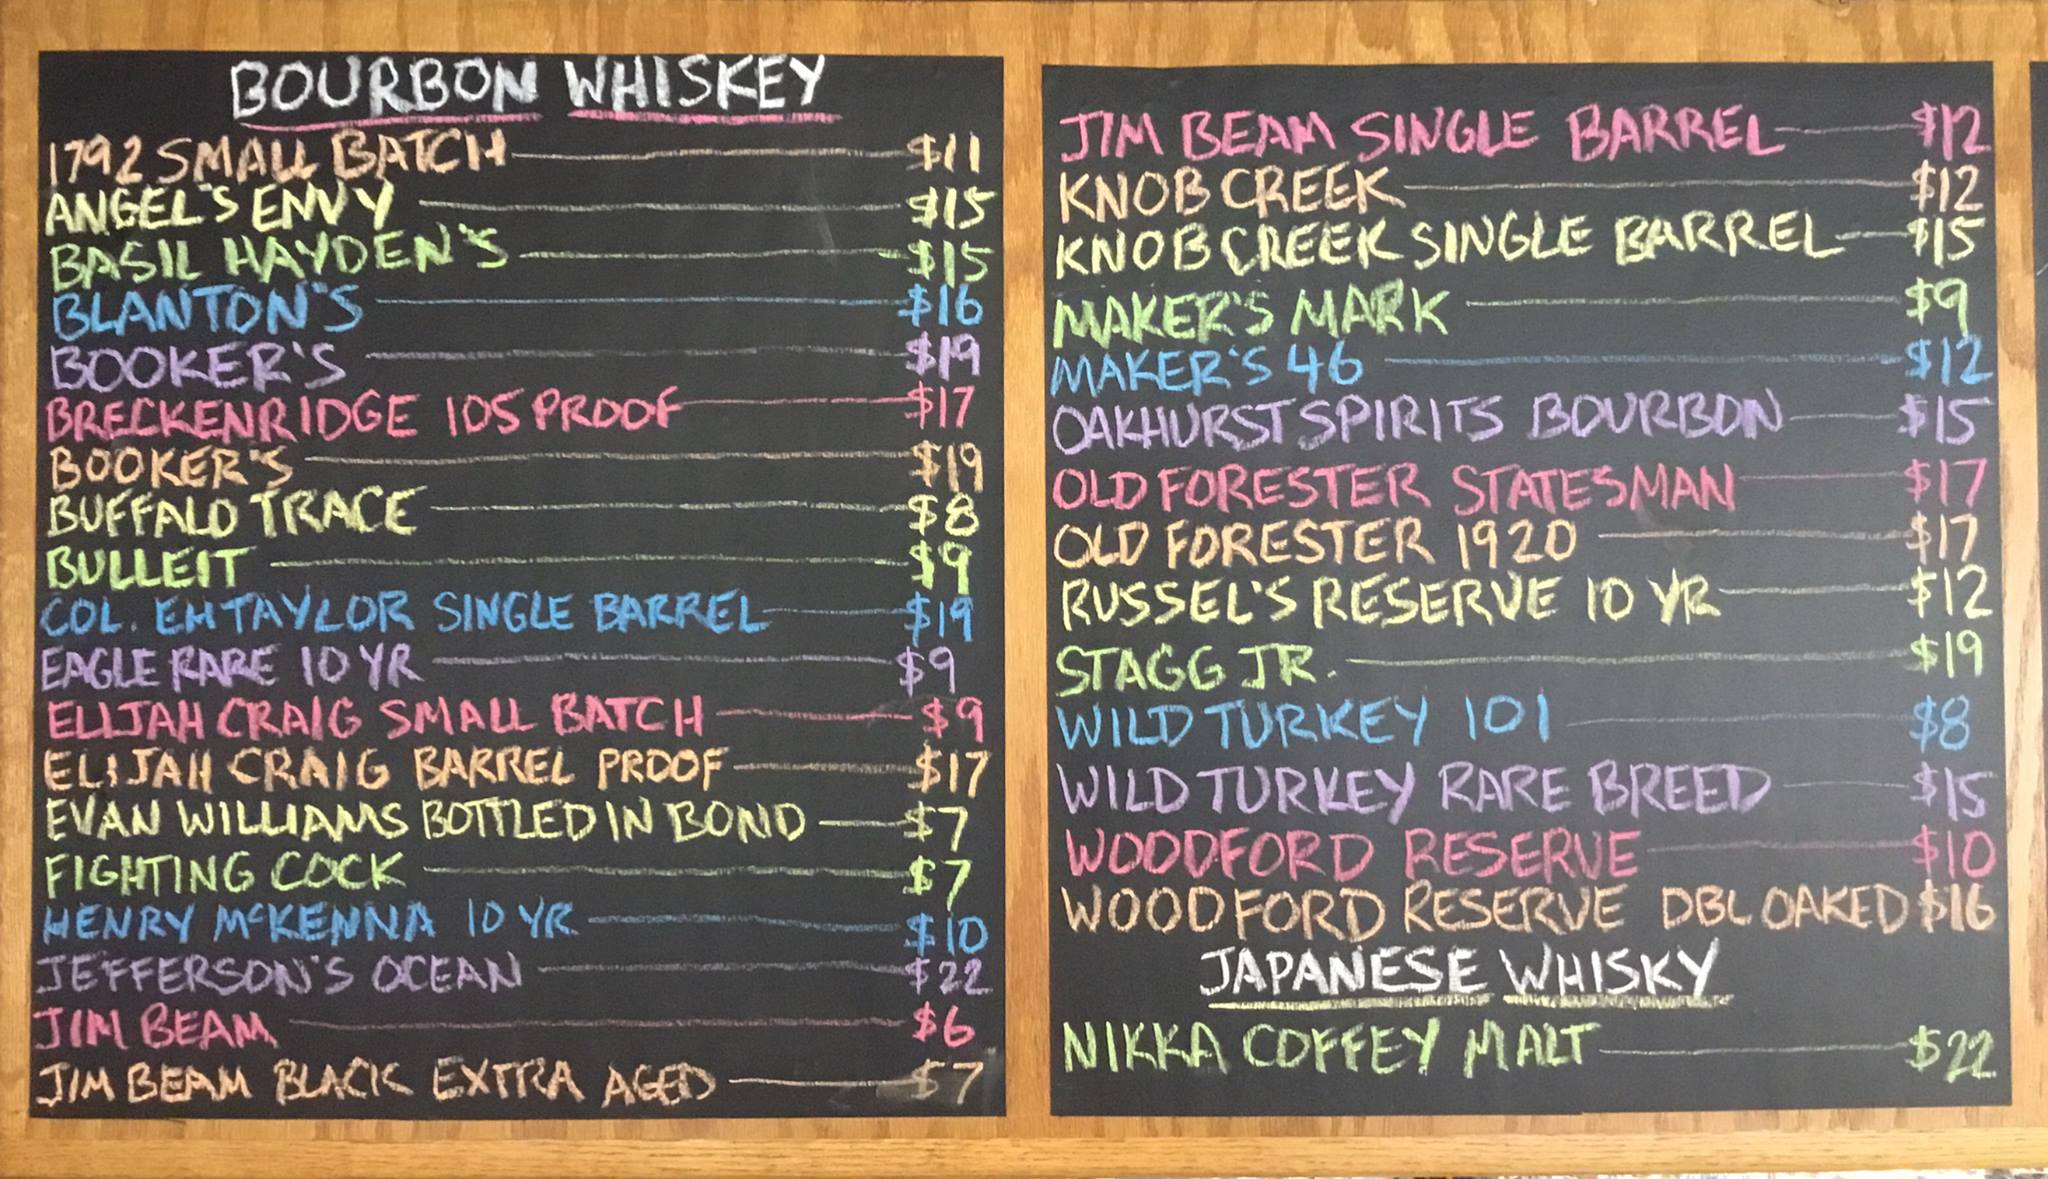 BOURBON WHISKEY
1792 SMALL BATCH $11
ANGEL'S ENVY $15
BASIL HAYDEN'S $15
BLANTON'S $16
BOOKER'S $19
BRECKENRIDGE 105 PROOF $17
BOOKER'S $19
BUFFALO TRACE $8
BULLEIT $9
COL. EH TAYLOR SINGLE BARREL $19
EAGLE RARE 10 YR $9
ELIJAH CRAIG SMALL BATCH $9
ELIJAH CRAIG BARREL PROOF $17
EVAN WILLIAMS BOTTLED IN BOND $7
FIGHTING COCK $7
HENRY McKENNA 10 YR $10
JEFFERSON'S OCEAN $22
JIM BEAM $6
JIM BEAM BLACK EXTRA AGED $7
JIM BEAM SINGLE BARREL $12
KNOB CREEK $12
KNOB CREEK SINGLE BARREL $15
MAKER'S MARK $9
MAKER'S 46 $12
OAKHURST SPIRITS BOURBON $15
OLD FORESTER STATESMAN $17
OLD FORESTER 1920 $17
RUSSEL'S RESERVE 10 YR $12
STAGG JR. $19
WILD TURKEY 101 $8
WILD TURKEY RARE BREED $15
WOODFORD RESERVE $10
WOODFORD RESERVE DBL OAKED $16
JAPANESE WHISKY
NIKKA COFFEY MALT $22